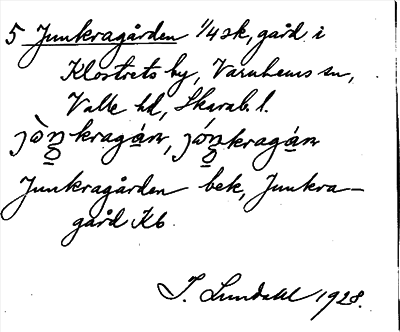 5 Junkragården 1/4 sk, gård i
Klostrets by, Varnhems sn,
Valle hd, Skarab. l.
jò̱ŋkragán, jóŋkragàn
Junkragården bek, Junkra-
gård Kb.
I. Lundahl 1928.